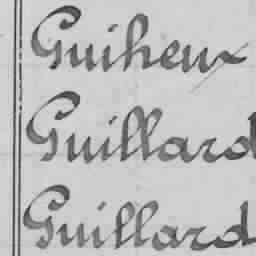 Guiheux
Guillard
Guillard